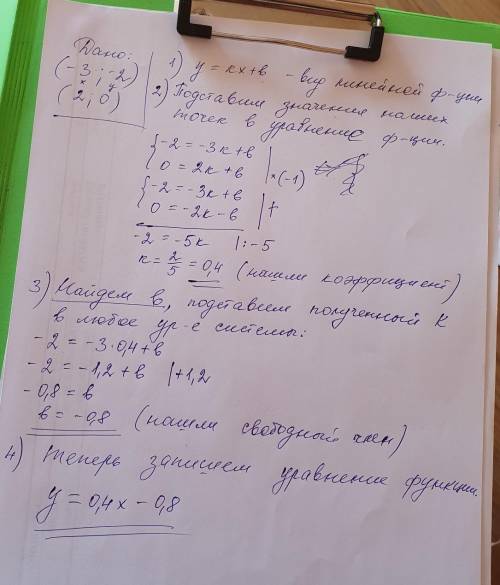 Дано:
(-3 ; -2)
x y
(2 ; 0)
1) y = кx+в - вид линейной ф-ции
2) Подставим значения наших
точек в уравнение ф-ции.
{ -2 = -3к+в
0 = 2к+в | ×(-1)
{ -2 = -3к+в
0 = -2к-в | +
-2 = -5к |:-5
к = 2/5 = 0,4 (нашли коэффициент)
3) Найдем в, подставим полученный К
в любое ур-е системы:
-2 = -3·0,4+в
-2 = -1,2+в |+1,2
-0,8 = в
в = -0,8 (нашли свободный член)
4) Теперь запишем уравнение функции.
y = 0,4x - 0,8